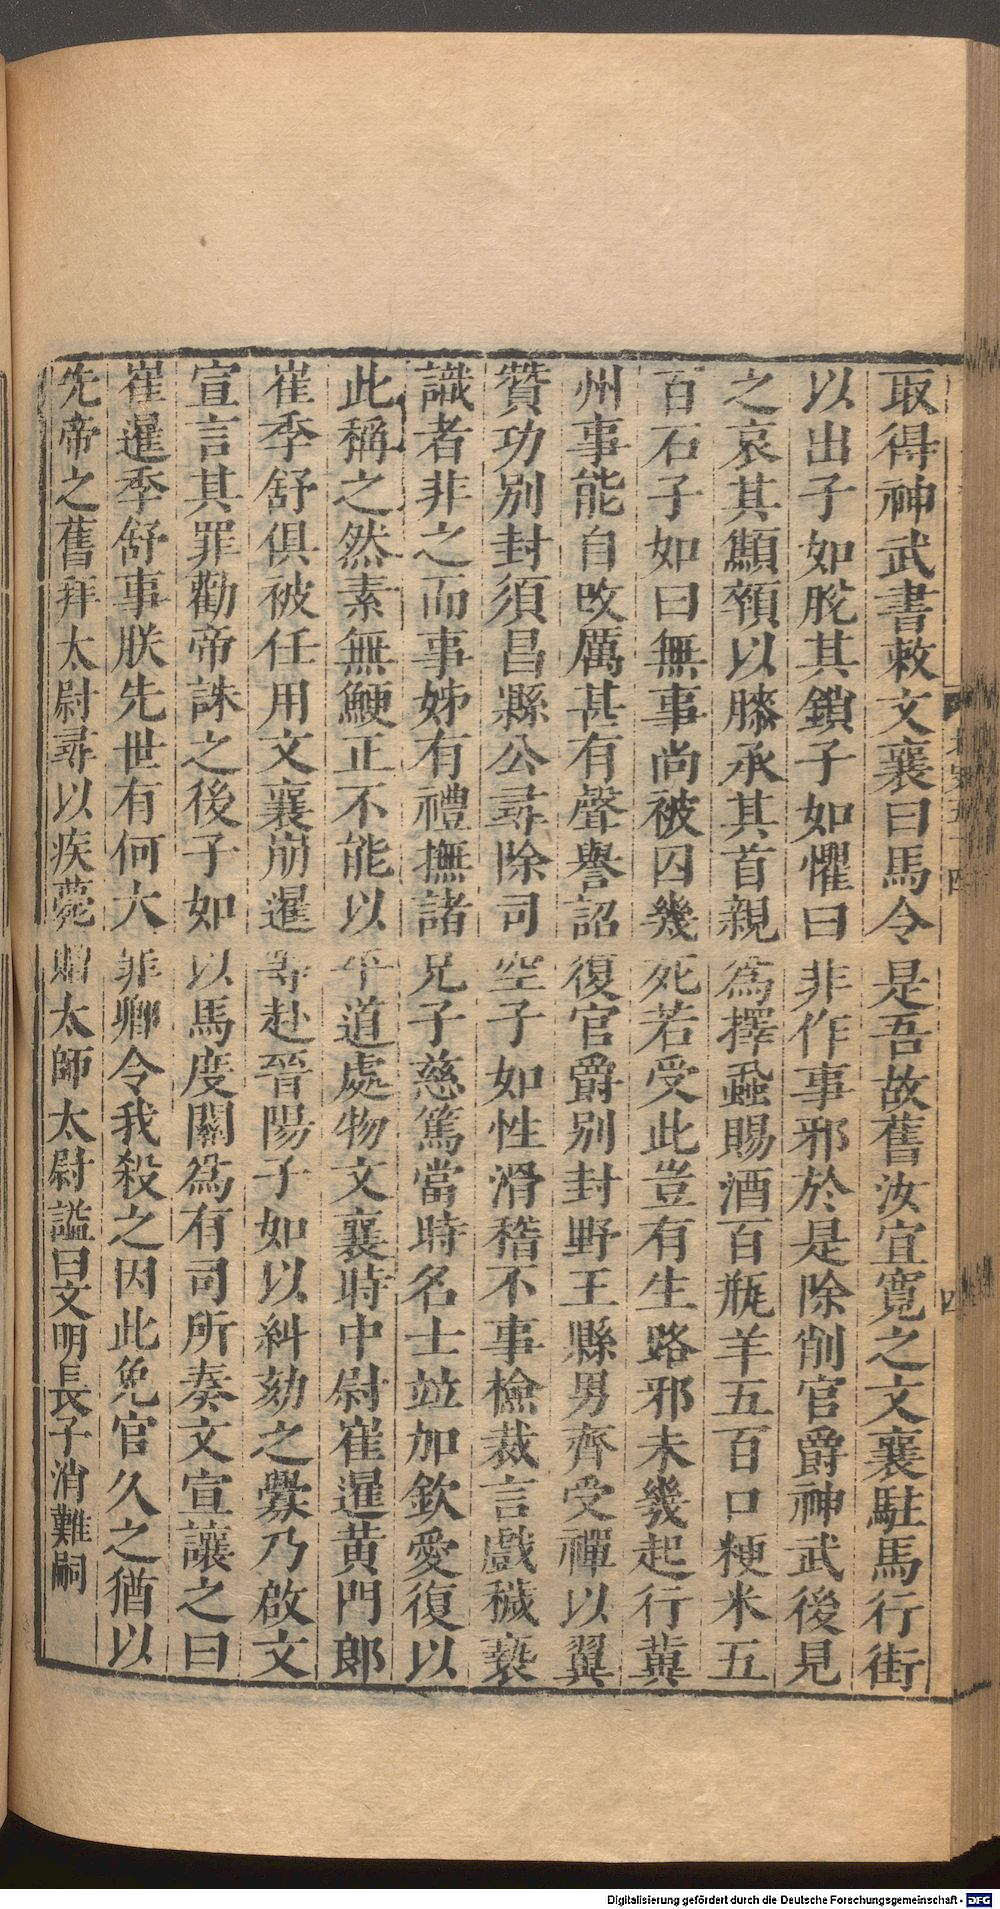 取得神武書敕文襄曰馬令是吾故舊汝宜寬之文襄駐馬行街
以出子如脫其鎖子如懼曰非作事邪於是除削官爵神武後見
之哀其顦顇以膝承其首親爲擇蝨賜酒百瓶羊五百口粳米五
百石子如曰無事尚被囚幾死若受此豈有生路邪未幾起行冀
州事能自改厲甚有聲譽詔復官爵別封野王縣男齊受禪以翼
贊功別封須昌縣公尋除司空子如性滑稽不事檢裁言戲穢褻
識者非之而事姊有禮撫諸兄子慈篤當時名士竝加欽愛復以
此稱之然素無鯁正不能以平道處物文襄時中尉崔暹黃門郎
崔季舒俱被任用文襄崩暹等赴晉陽子如以糾劾之釁乃啟文
宣言其罪勸帝誅之後子如以馬度關爲有司所奏文宣讓之曰
崔暹季舒事朕先世有何大罪卿令我殺之因此免官久之猶以
先帝之舊拜太尉尋以疾薨贈太師太尉謚曰文明長子消難嗣
四
Digitalisierung gefördert durch die Deutsche Forschungsgemeinschaft - DFG